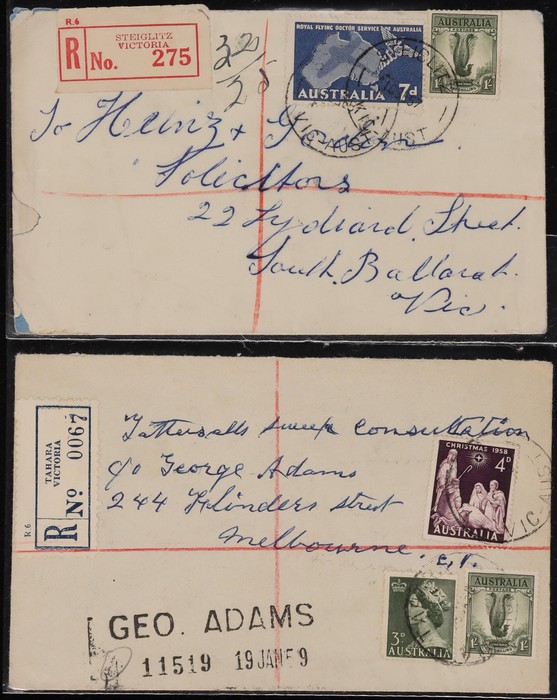 R.6
STEIGLITZ
VICTORIA
R No. 275
ROYAL FLYING DOCTOR SERVICE OF AUSTRALIA
AUSTRALIA 7d
AUSTRALIA
POSTAGE
1/- 1/-
VIC-AUST
VIC-AUST
To Heinz &
Solicitors
22 Lydiard Street.
South Ballarat.
Vic.
R 6
TAHARA
VICTORIA
R No 0067
Tattersalls sweep consultation
c/o George Adams
244 Flinders street
Melbourne. C.1.
CHRISTMAS 1958
4D
AUSTRALIA
3D
AUSTRALIA
AUSTRALIA
POSTAGE
1/- 1/-
GEO. ADAMS
11519 19JAN59